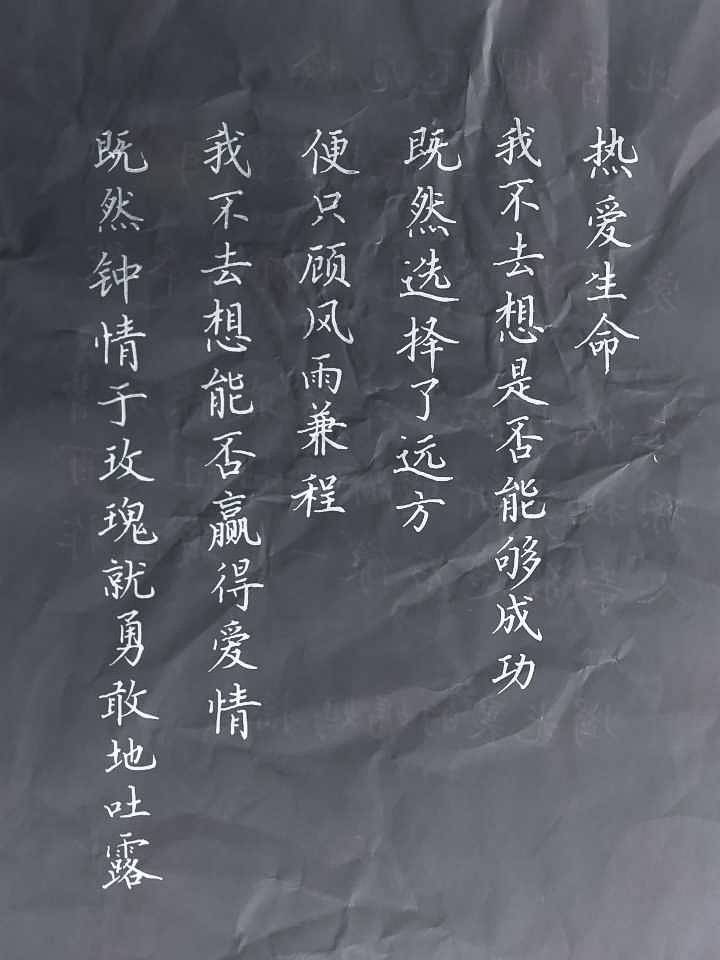 热爱生命
我不去想是否能够成功
既然选择了远方
便只顾风雨兼程
我不去想能否赢得爱情
既然钟情于玫瑰就勇敢地吐露